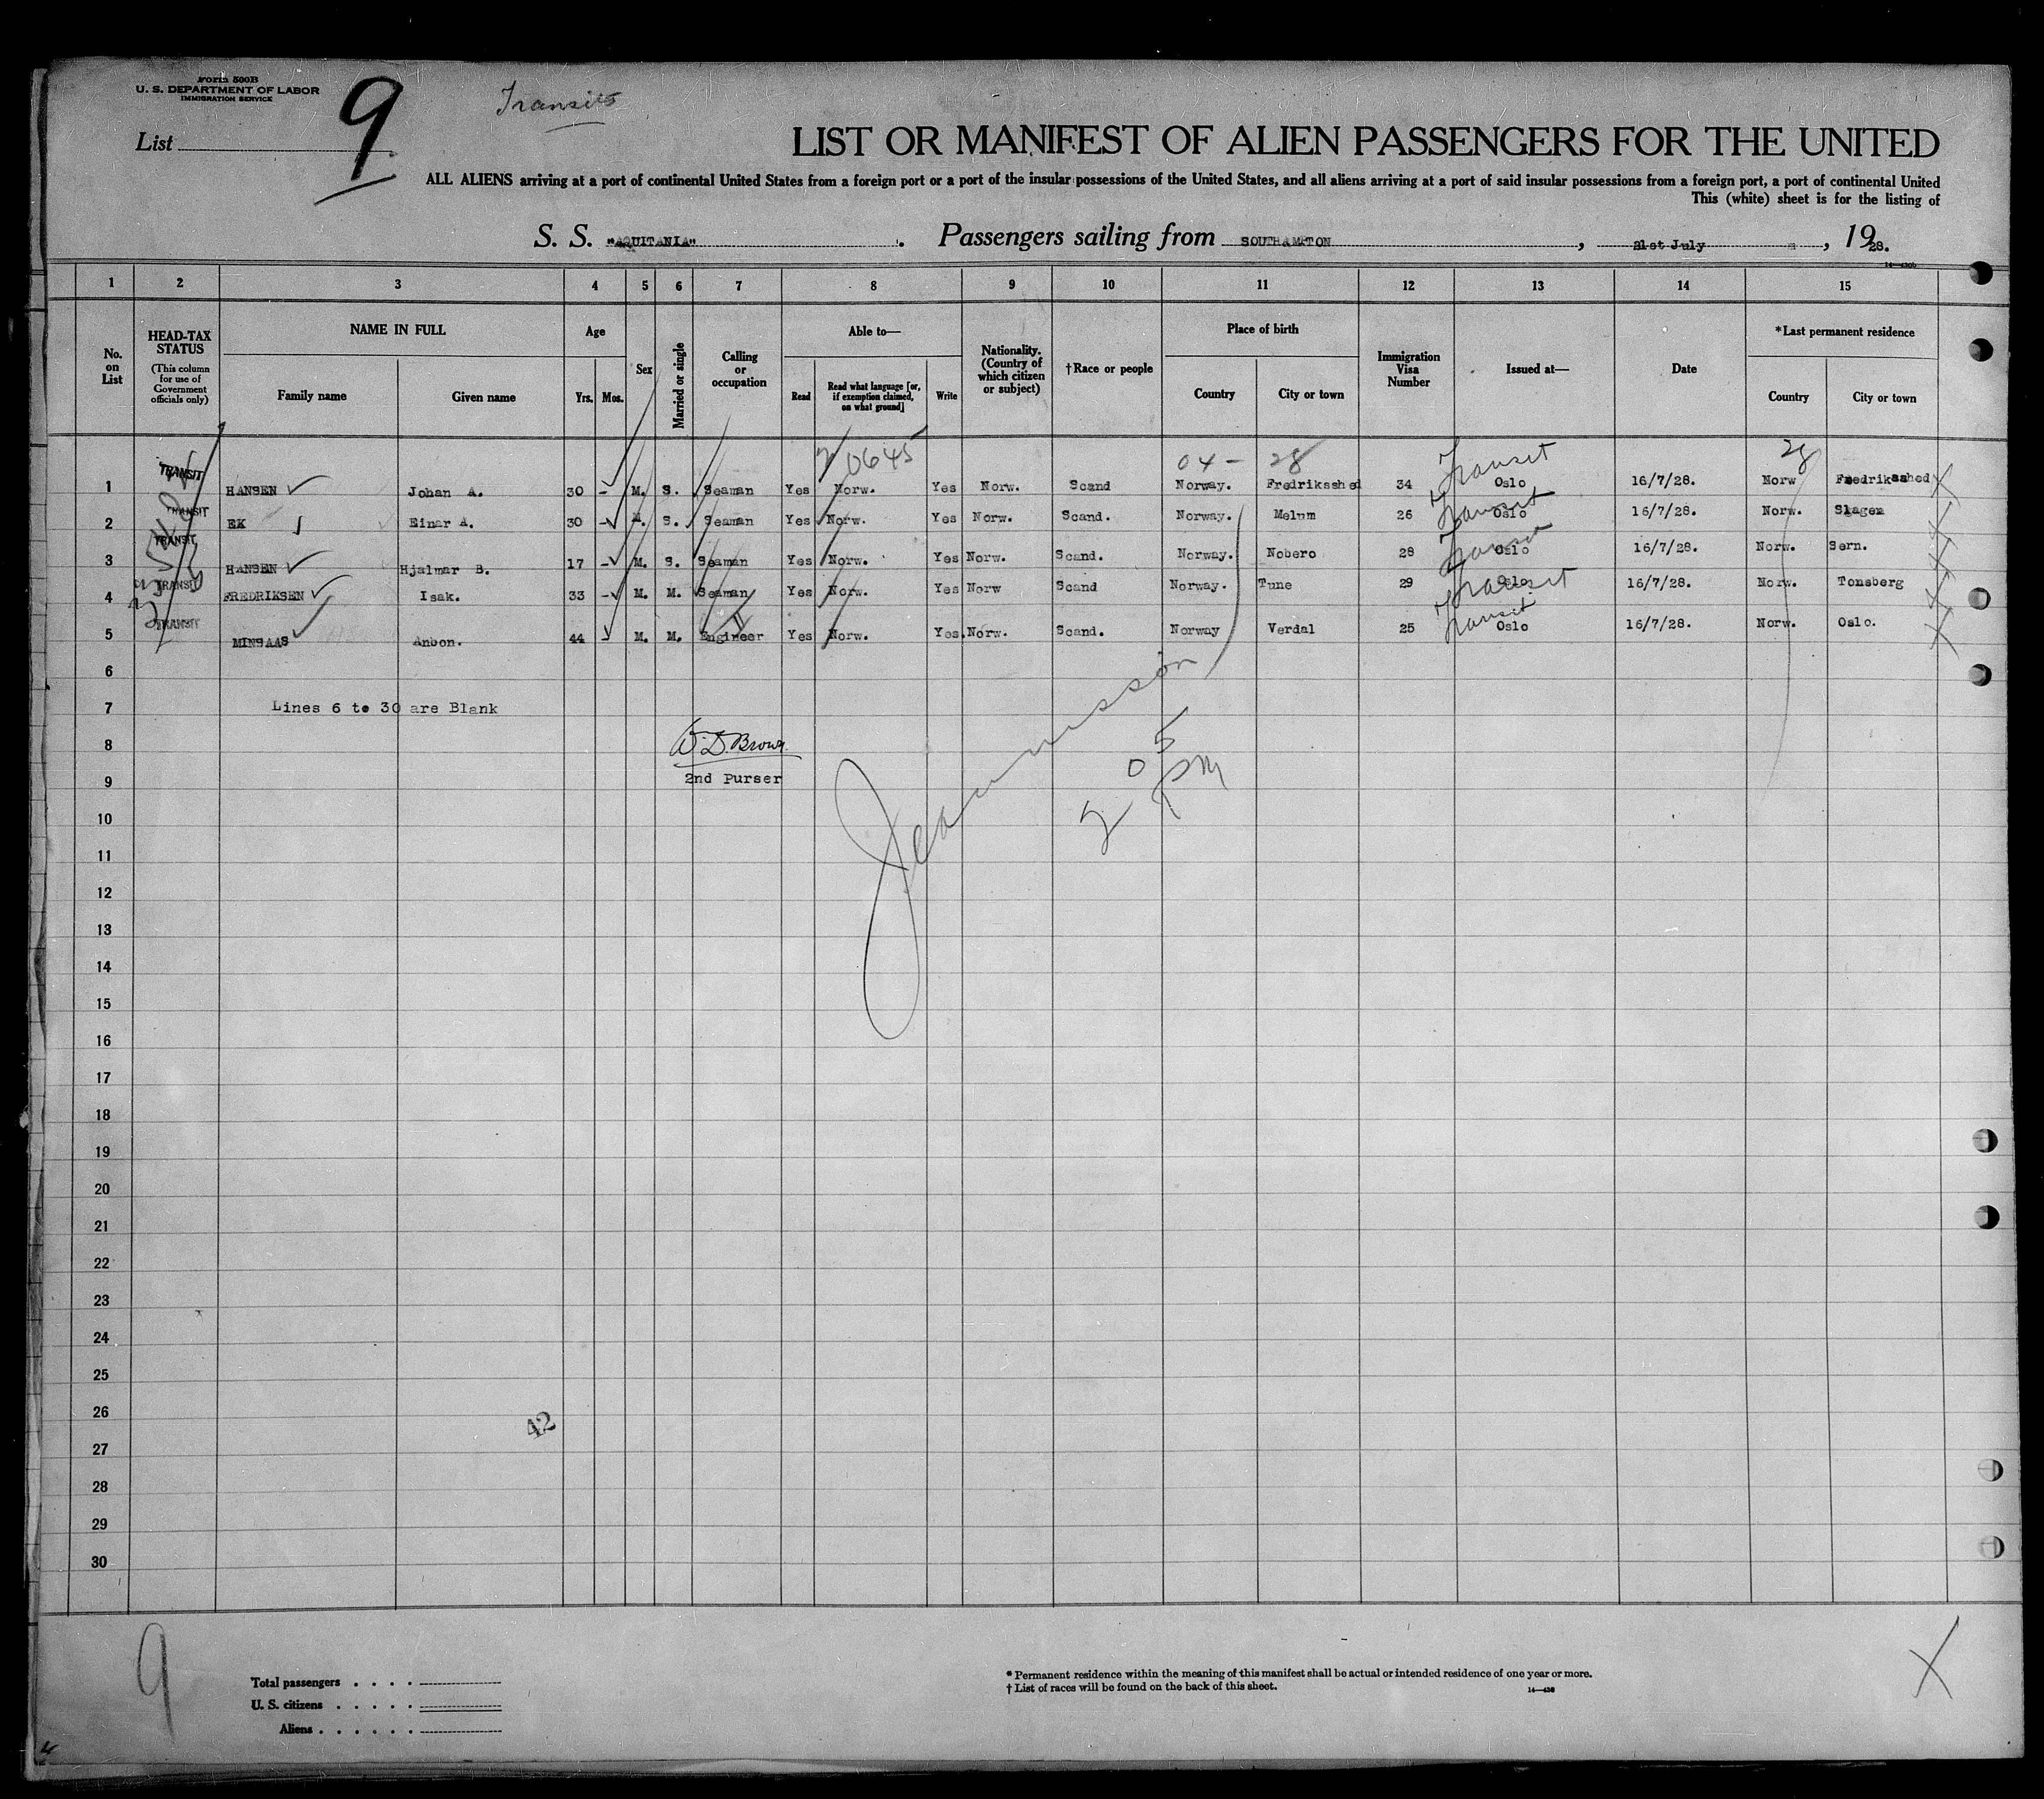 Form 500B
U. S. DEPARTMENT OF LABOR
IMMIGRATION SERVICE
List 9
Transits
LIST OR MANIFEST OF ALIEN PASSENGERS FOR THE UNITED
ALL ALIENS arriving at a port of continental United States from a foreign port or a port of the insular possessions of the United States, and all aliens arriving at a port of said insular possessions from a foreign port, a port of continental United
This (white) sheet is for the listing of
S. S. "AQUITANIA". Passengers sailing from SOUTHAMPTON, 21st July, 1928.
1 2 3 4 5 6 7 8 9 10 11 12 13 14 15
No. on List
HEAD-TAX STATUS (This column for use of Government officials only)
NAME IN FULL Family name Given name
Age Yrs. Mos.
Sex
Married or single
Calling or occupation
Able to— Read Read what language [or, if exemption claimed, on what ground] Write
Nationality. (Country of which citizen or subject)
†Race or people
Place of birth Country City or town
Immigration Visa Number
Issued at—
Date
*Last permanent residence Country City or town
0645 04 - 28 28
1 TRANSIT HANSEN Johan A. 30 - M. S. Seaman Yes Norw. Yes Norw. Scand Norway. Fredriksshed 34 Transit Oslo 16/7/28. Norw Fredriksshed
2 TRANSIT EK Einar A. 30 - M. S. Seaman Yes Norw. Yes Norw. Scand. Norway. Melum 26 Transit Oslo 16/7/28. Norw. Slagen
3 TRANSIT HANSEN Hjalmar B. 17 - M. S. Seaman Yes Norw. Yes Norw. Scand. Norway. Nobero 28 Transit Oslo 16/7/28. Norw. Sern.
4 TRANSIT FREDRIKSEN Isak. 33 - M. M. Seaman Yes Norw. Yes Norw Scand Norway. Tune 29 Transit Oslo 16/7/28. Norw. Tonsberg
5 TRANSIT MINSAAS Anbon. 44 M. M. Engineer Yes Norw. Yes. Norw. Scand. Norway Verdal 25 Transit Oslo 16/7/28. Norw. Oslo.
6
7 Lines 6 to 30 are Blank
8 W. D. Brown
9 2nd Purser
2 05 PM
10
11
12
13
14
15
16
17
18
19
20
21
22
23
24
25
26
42
27
28
29
30
9
Total passengers
U. S. citizens
Aliens
* Permanent residence within the meaning of this manifest shall be actual or intended residence of one year or more.
† List of races will be found on the back of this sheet.
X